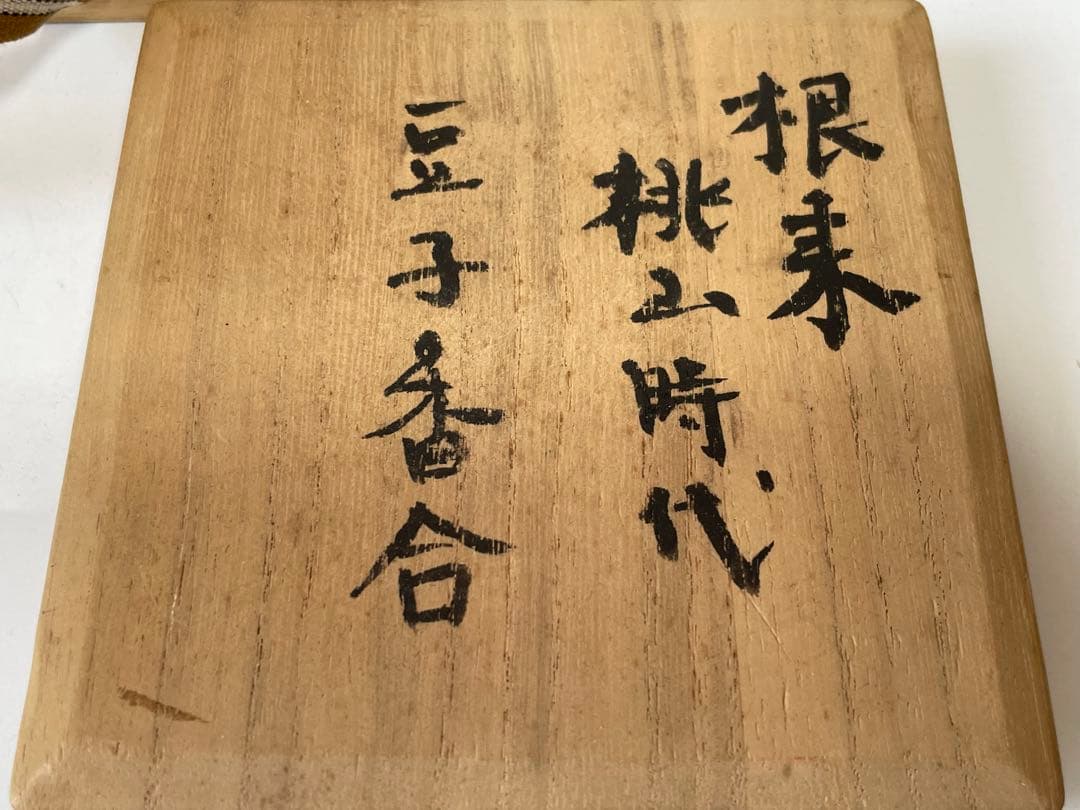 根来
桃山時代
豆子香合